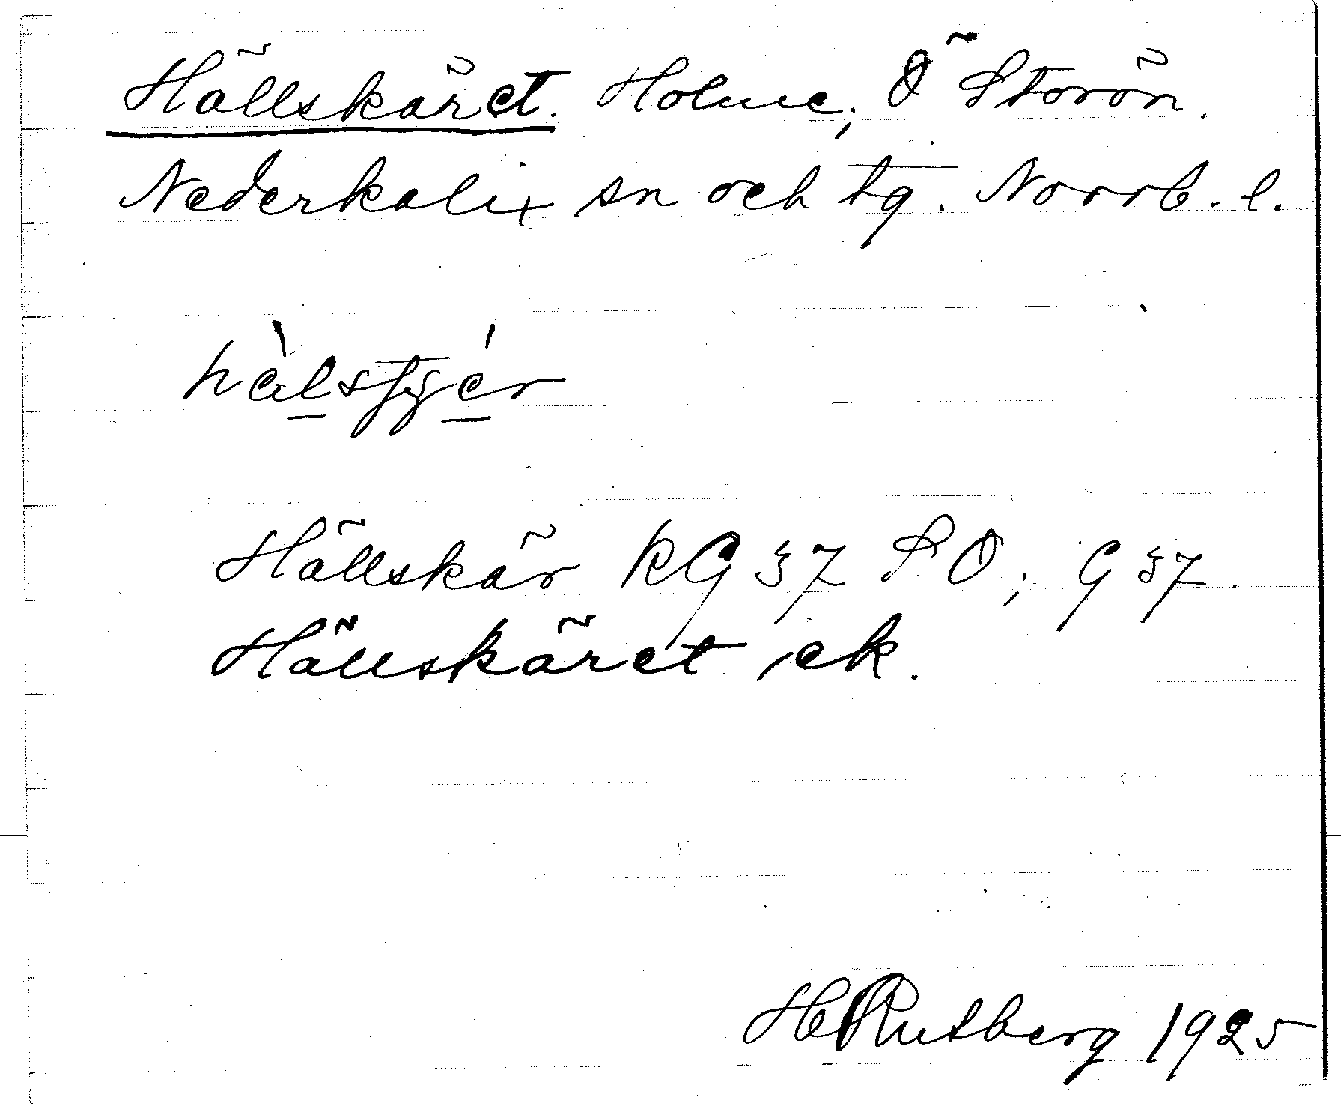 Hällskäret. Holme, Ö Storön.
Nederkalix sn och tg. Norrb. l.
Hällskär RG 37 SO, G 37.
Hällskäret, ek.
H Rutberg 1925